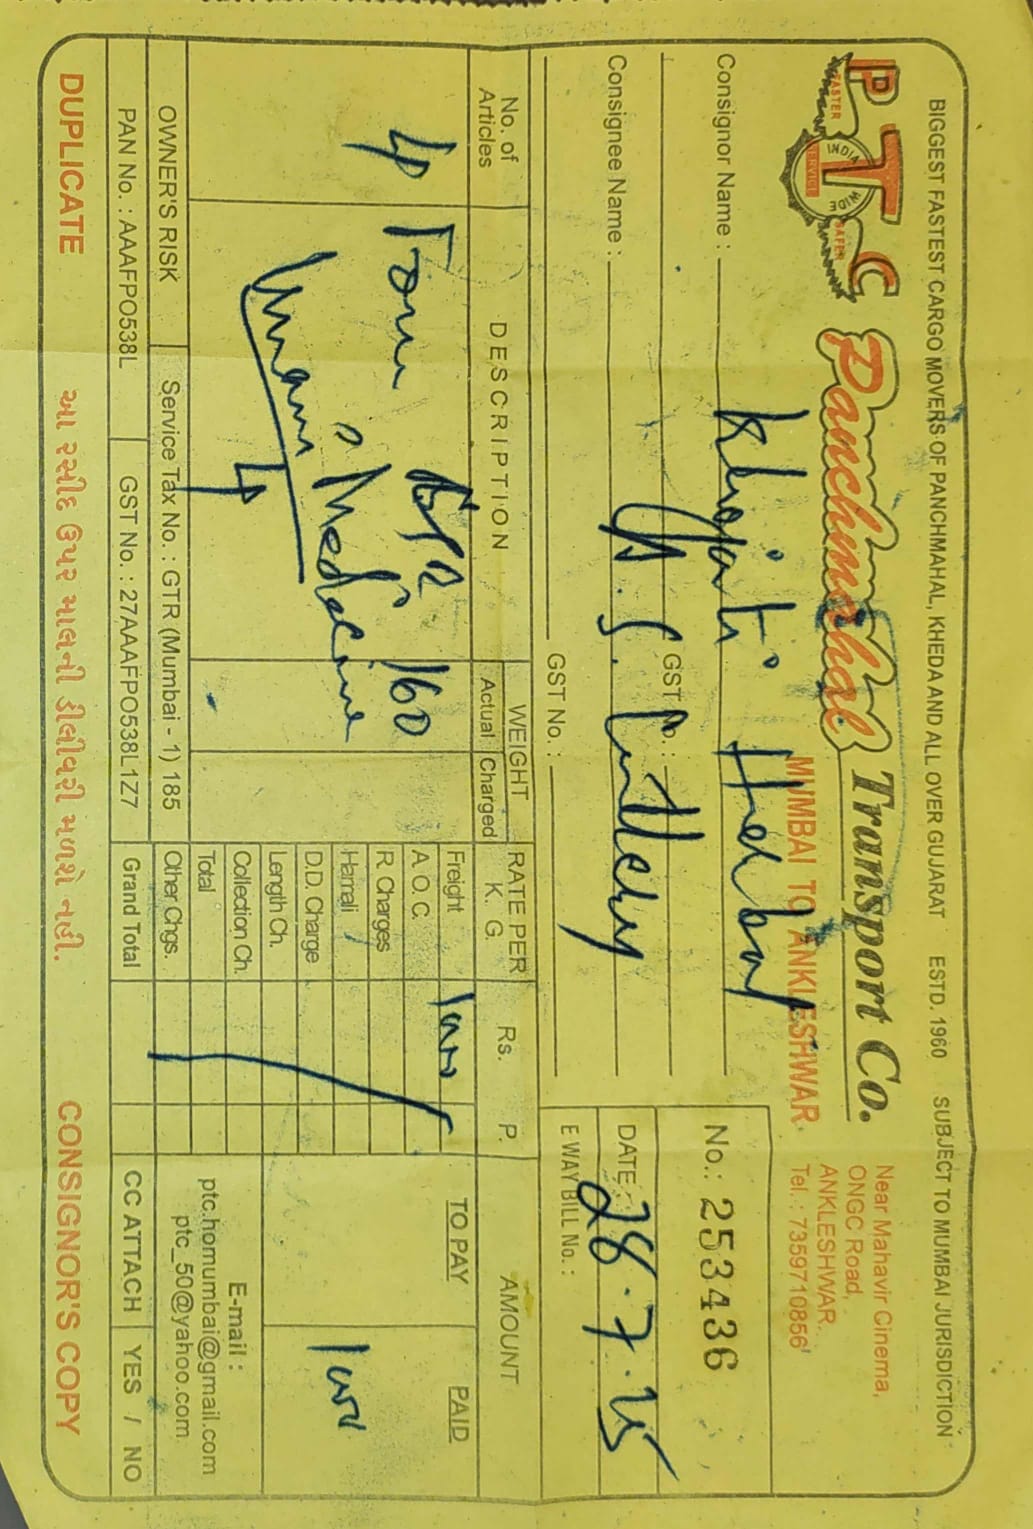 BIGGEST FASTEST CARGO MOVERS OF PANCHMAHAL, KHEDA AND ALL OVER GUJARAT ESTD. 1960 SUBJECT TO MUMBAI JURISDICTION
PTC
FASTER
INDIA WIDE
SERVICE
SAFER
Panchmahal Transport Co.
MUMBAI TO ANKLESHWAR
Near Mahavir Cinema,
ONGC Road,
ANKLESHWAR.
Tel. : 7359710856
Consignor Name : Herbal
No.: 253436
GST No. :
DATE : 28.7.25
Consignee Name :
GST No. :
E WAY BILL No. :
No. of Articles
DESCRIPTION
WEIGHT
Actual Charged
RATE PER K. G.
Rs. P.
AMOUNT
TO PAY
PAID
4 Four 160
Medicine
4
Freight
A. O. C.
R. Charges
Hamali
D.D. Charge
Length Ch.
Collection Ch.
Total
Other Chgs.
Grand Total
E-mail :
ptc.homumbai@gmail.com
ptc_50@yahoo.com
OWNER'S RISK
Service Tax No. : GTR (Mumbai - 1) 185
PAN No. : AAAFPO538L
GST No. : 27AAAFPO538L1Z7
CC ATTACH YES / NO
DUPLICATE
આ રસીદ ઉપર માલની ડીલીવરી મળશે નહી.
CONSIGNOR'S COPY